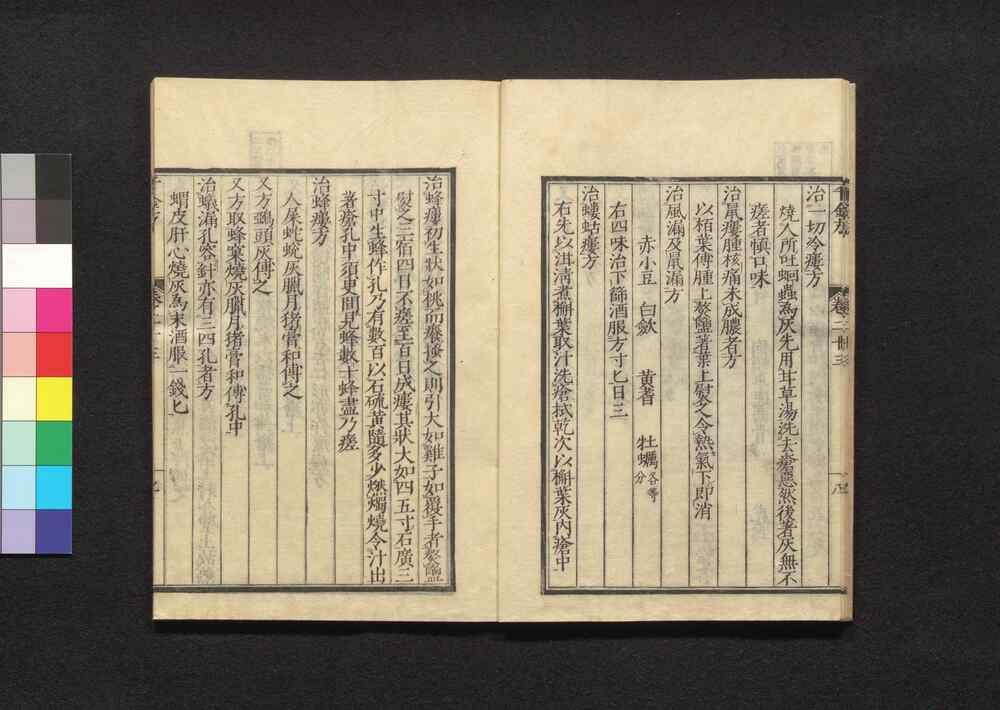 治一切冷瘻方
燒人所吐蛔蟲為灰先用甘草湯洗去瘡惡然後著灰無不
瘥者慎口味
治鼠瘻腫核痛未成膿者方
以栢葉傅腫上熬鹽著葉上熨之令熱氣下即消
治風漏及鼠漏方
赤小豆 白斂 黃耆 牡蠣各等分
右四味治下篩酒服方寸匕日三
治螻蛄瘻方
右先以泔清煮槲葉取汁洗瘡拭乾次以槲葉灰內瘡中
治蜂瘻初生狀如桃而癢搔之則引大如雞子如覆手者熬鹽
熨之三宿四日不瘥至百日成瘻其狀大如四五寸石廣三
寸中生蜂作孔乃有數百以石硫黃隨多少燃燭燒令汁出
著瘡孔中須臾間見蜂數十蜂盡乃瘥
治蜂瘻方
人屎蛇蛻灰臘月猪膏和傅之
又方鴟頭灰傅之
又方取蜂窠燒灰臘月猪膏和傅孔中
治蟻漏孔容針亦有三四孔者方
蝟皮肝心燒灰為末酒服一錢匕